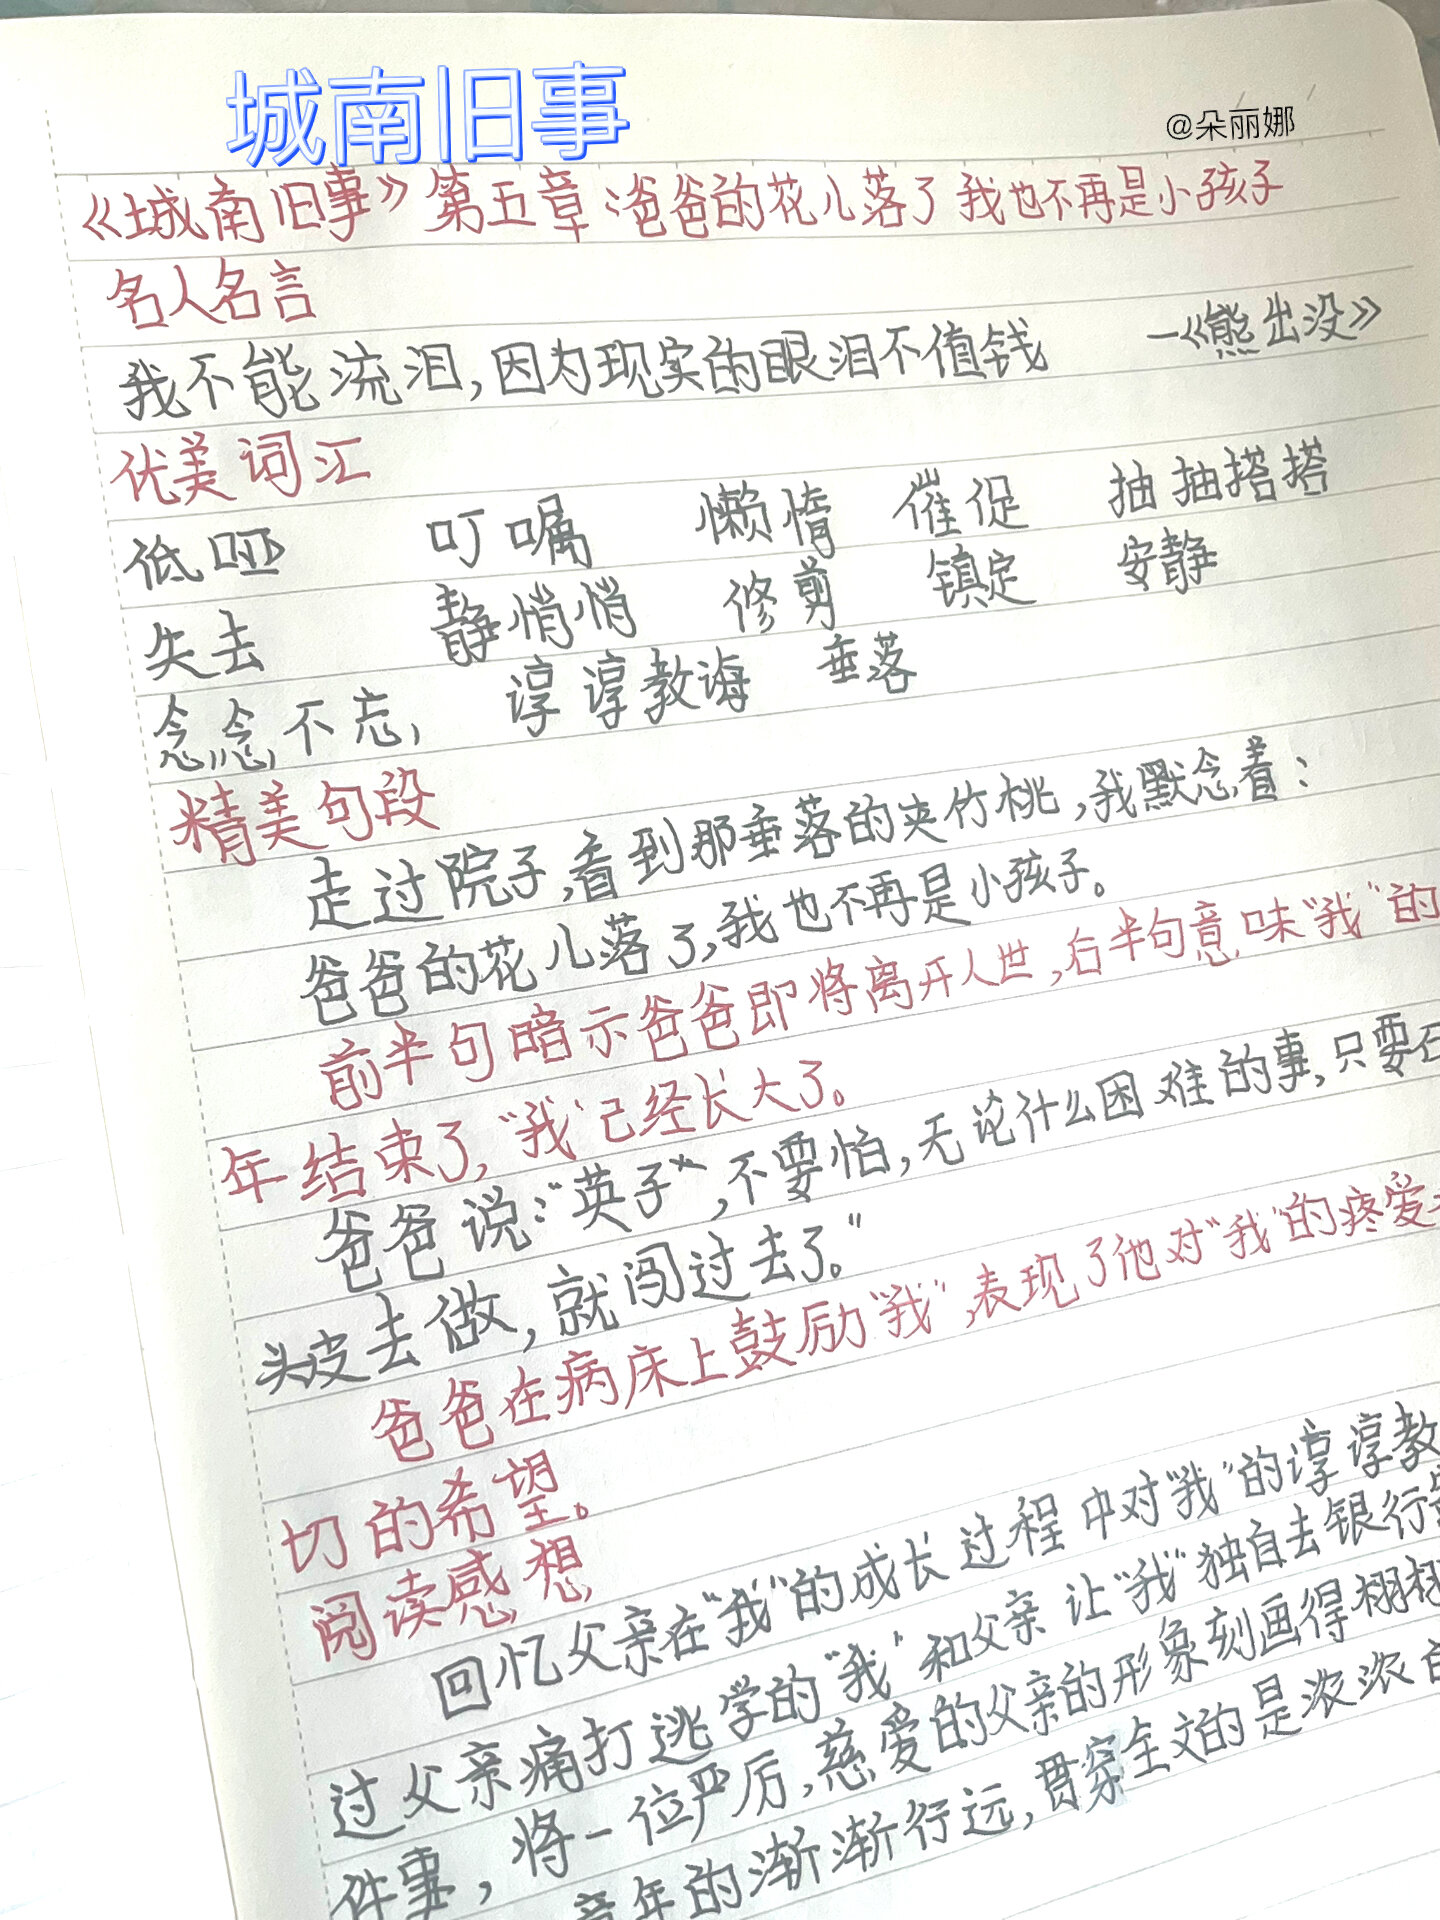 城南旧事
@朵丽娜
《城南旧事》第五章:爸爸的花儿落了 我也不再是小孩子
名人名言
我不能流泪,因为现实的眼泪不值钱 —《熊出没》
优美词汇
低哑 叮嘱 懒惰 催促 抽抽搭搭
失去 静悄悄 修剪 镇定 安静
念念不忘, 谆谆教诲 垂落
精美句段
走过院子,看到那垂落的夹竹桃,我默念着:
爸爸的花儿落了,我也不再是小孩子。
前半句暗示爸爸即将离开人世,后半句意味“我”的
年结束了,“我”已经长大了。
爸爸说:“英子”,不要怕,无论什么困难的事,只要
头皮去做,就闯过去了。”
爸爸在病床上鼓励“我”,表现了他对“我”的疼爱
切的希望。
阅读感想
回忆父亲在“我”的成长过程中对“我”的谆谆教
过父亲痛打逃学的“我”和父亲让“我”独自去银行
件事,将一位严厉,慈爱的父亲的形象刻画得栩栩
童年的渐渐行远,贯穿全文的是浓浓